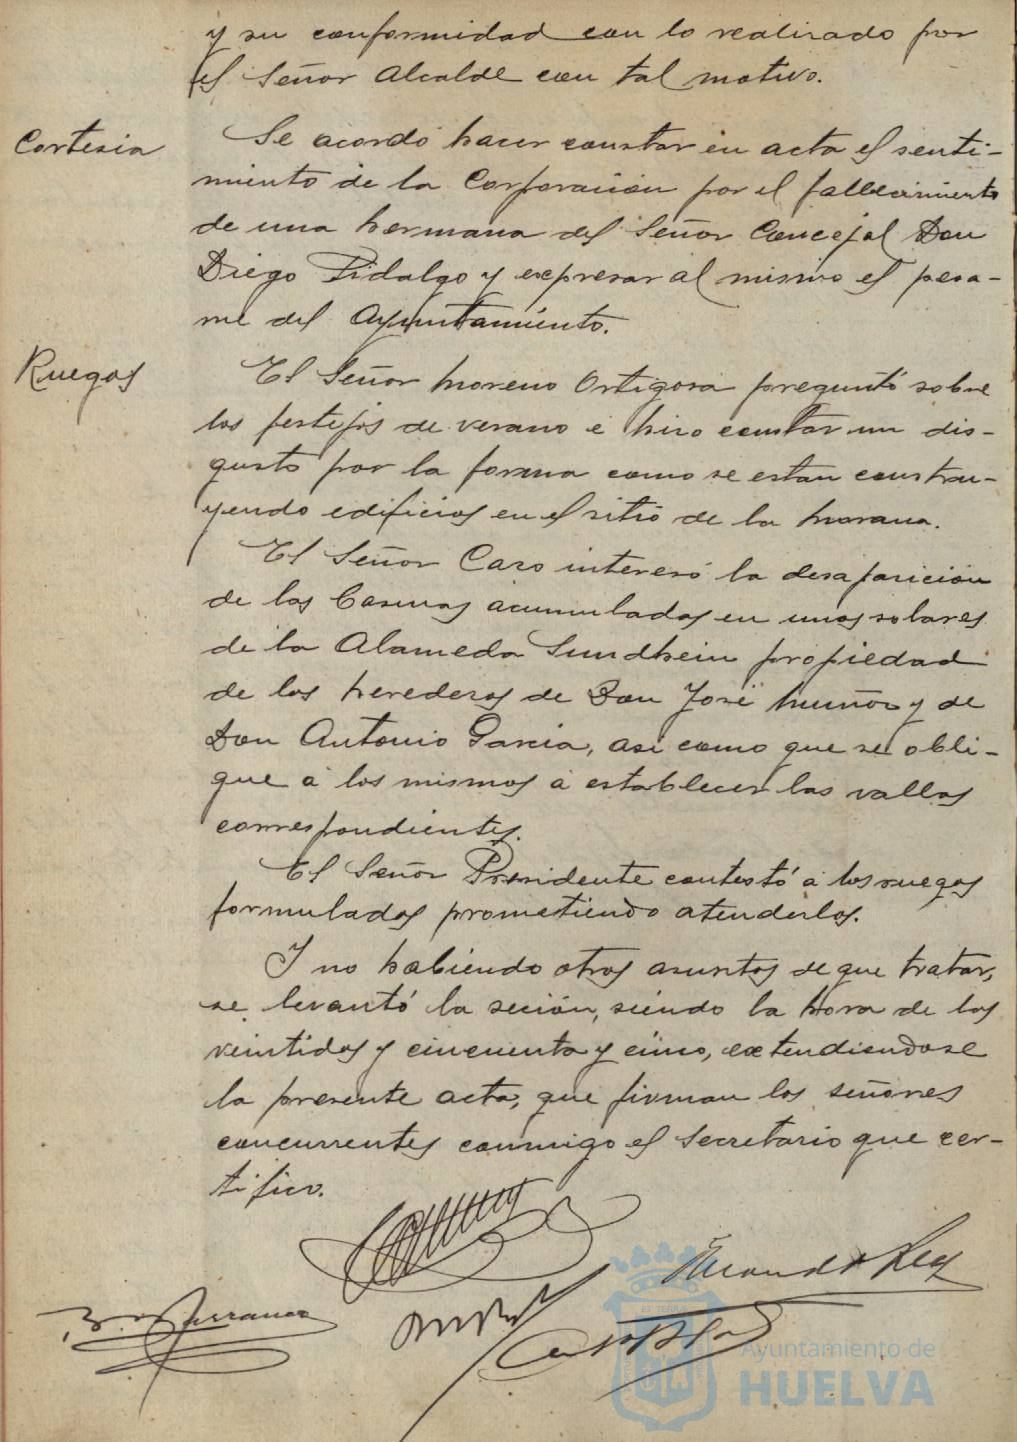 y su conformidad con lo realizado por
el Señor Alcalde con tal motivo.
Cortesia
Se acordó hacer constar en acta el senti-
miento de la Corporación por el fallecimiento
de una hermana del Señor Concejal Don
Diego Fidalgo y expresar al mismo el pesa-
me del Ayuntamiento.
Ruegos
El Señor Moreno Ortigosa preguntó sobre
los festejos de verano e hizo constar un dis-
gusto por la forma como se estan constru-
yendo edificios en el sitio de la morana.
El Señor Cazo interesó la desaparición
de las basuras acumuladas en unos solares
de la Alameda Sundhein propiedad
de los herederos de Don José Muñoz y de
Don Antonio Garcia, asi como que se obli-
gue á los mismos á establecer las vallas
correspondientes.
El Señor Presidente contestó á los ruegos
formulados prometiendo atenderlos.
Y no habiendo otros asuntos de que tratar,
se levantó la seción, siendo la hora de las
veintidos y cincuenta y cinco, extendiendose
la presente acta, que firman los señores
concurrentes conmigo el Secretario que cer-
tifico.
Ayuntamiento de
HUELVA